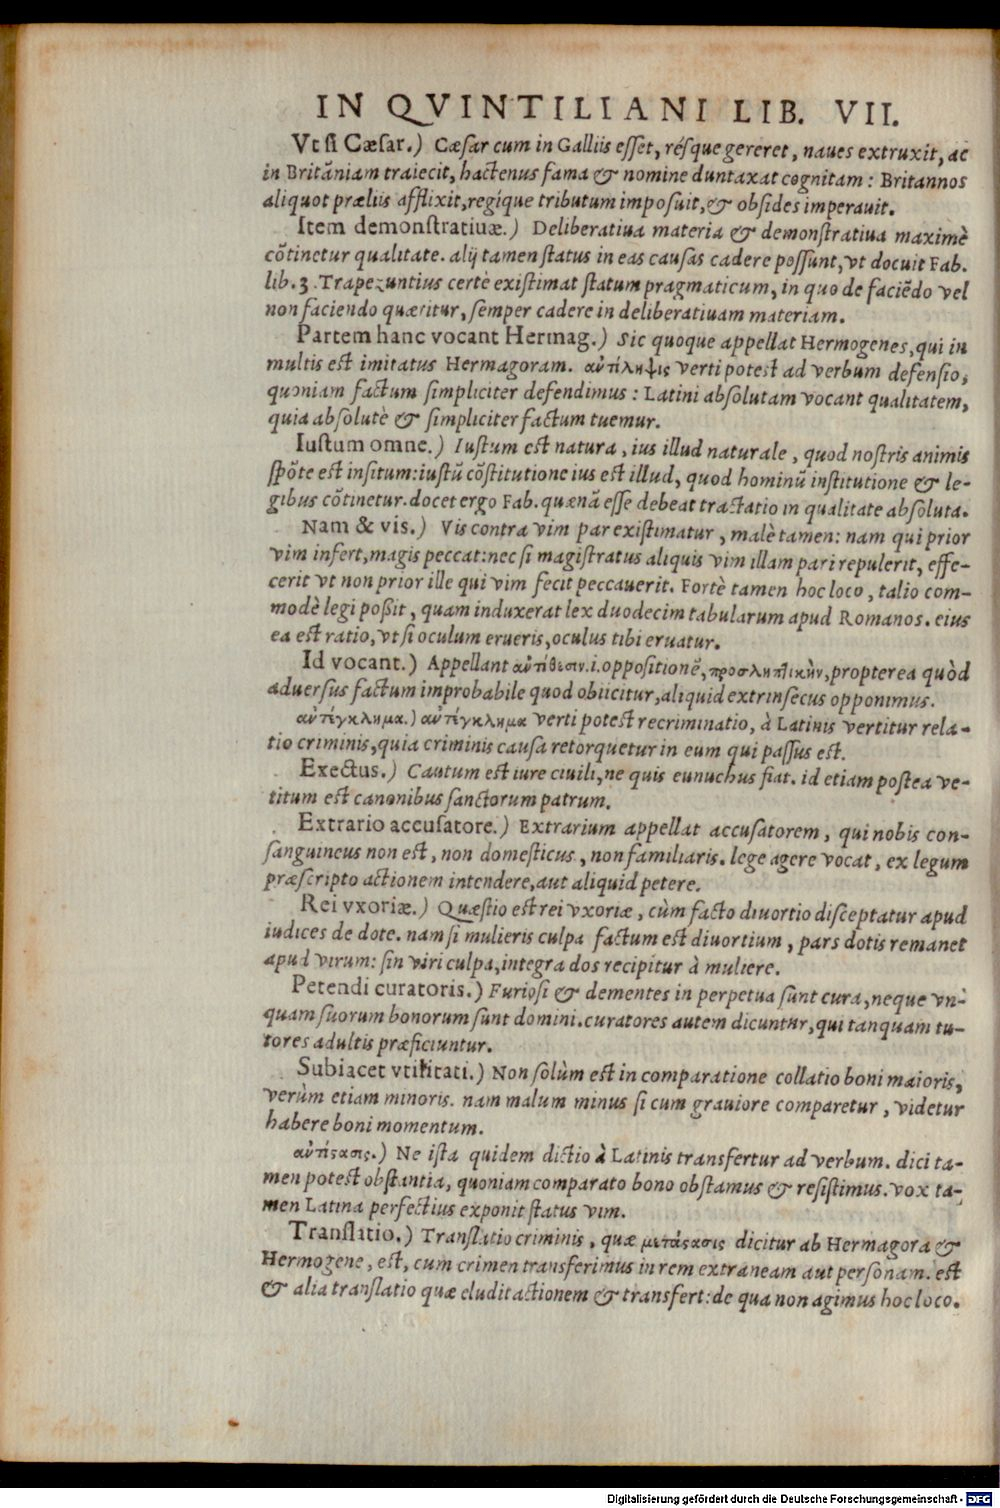 IN QVINTILIANI LIB. VII.
Vt si Cæsar.) Cæsar cum in Galliis esset, résque gereret, naues extruxit, ac
in Britãniam traiecit, hactenus fama & nomine duntaxat cognitam: Britannos
aliquot præliis afflixit, regíque tributum imposuit, & obsides imperauit.
Item demonstratiuæ.) Deliberatiua materia & demonstratiua maximè
cõtinetur qualitate. alij tamen status in eas causas cadere possunt, vt docuit Fab.
lib. 3. Trapezuntius certè existimat statum pragmaticum, in quo de faciẽdo vel
non faciendo quæritur, semper cadere in deliberatiuam materiam.
Partem hanc vocant Hermag.) Sic quoque appellat Hermogenes, qui in
multis est imitatus Hermagoram. ἀντίληψις verti potest ad verbum defensio,
quoniam factum simpliciter defendimus: Latini absolutam vocant qualitatem,
quia absolutè & simpliciter factum tuemur.
Iustum omne.) Iustum est natura, ius illud naturale, quod nostris animis
spõte est insitum: iustũ cõstitutione ius est illud, quod hominũ institutione & le-
gibus cõtinetur. docet ergo Fab. quænã esse debeat tractatio in qualitate absoluta.
Nam & vis.) Vis contra vim par existimatur, malè tamen: nam qui prior
vim infert, magis peccat: nec si magistratus aliquis vim illam pari repulerit, effe-
cerit vt non prior ille qui vim fecit peccauerit. Fortè tamen hoc loco, talio com-
modè legi poßit, quam induxerat lex duodecim tabularum apud Romanos. eius
ea est ratio, vt si oculum erueris, oculus tibi eruatur.
Id vocant.) Appellant ἀντίθεσιν. i. oppositionẽ, προσληπτικὴν, propterea quòd
aduersus factum improbabile quod obiicitur, aliquid extrinsecus opponimus.
ἀντέγκλημα.) ἀντέγκλημα verti potest recriminatio, à Latinis vertitur rela-
tio criminis, quia criminis causa retorquetur in eum qui passus est.
Exectus.) Cautum est iure ciuili, ne quis eunuchus fiat. id etiam postea ve-
titum est canonibus sanctorum patrum.
Extrario accusatore.) Extrarium appellat accusatorem, qui nobis con-
sanguineus non est, non domesticus, non familiaris. lege agere vocat, ex legum
præscripto actionem intendere, aut aliquid petere.
Rei vxoriæ.) Quæstio est rei vxoriæ, cùm facto diuortio disceptatur apud
iudices de dote. nam si mulieris culpa factum est diuortium, pars dotis remanet
apud virum: sin viri culpa, integra dos recipitur à muliere.
Petendi curatoris.) Furiosi & dementes in perpetua sunt cura, neque vn-
quam suorum bonorum sunt domini. curatores autem dicuntur, qui tanquam tu-
tores adultis præficiuntur.
Subiacet vtilitati.) Non solùm est in comparatione collatio boni maioris,
verùm etiam minoris. nam malum minus si cum grauiore comparetur, videtur
habere boni momentum.
ἀντίϛασις.) Ne ista quidem dictio à Latinis transfertur ad verbum. dici ta-
men potest obstantia, quoniam comparato bono obstamus & resistimus. vox ta-
men Latina perfectius exponit status vim.
Translatio.) Translatio criminis, quæ μετάϛασις dicitur ab Hermagora &
Hermogene, est, cum crimen transferimus in rem extraneam aut personam. est
& alia translatio quæ eludit actionem & transfert: de qua non agimus hoc loco.
Digitalisierung gefördert durch die Deutsche Forschungsgemeinschaft - DFG